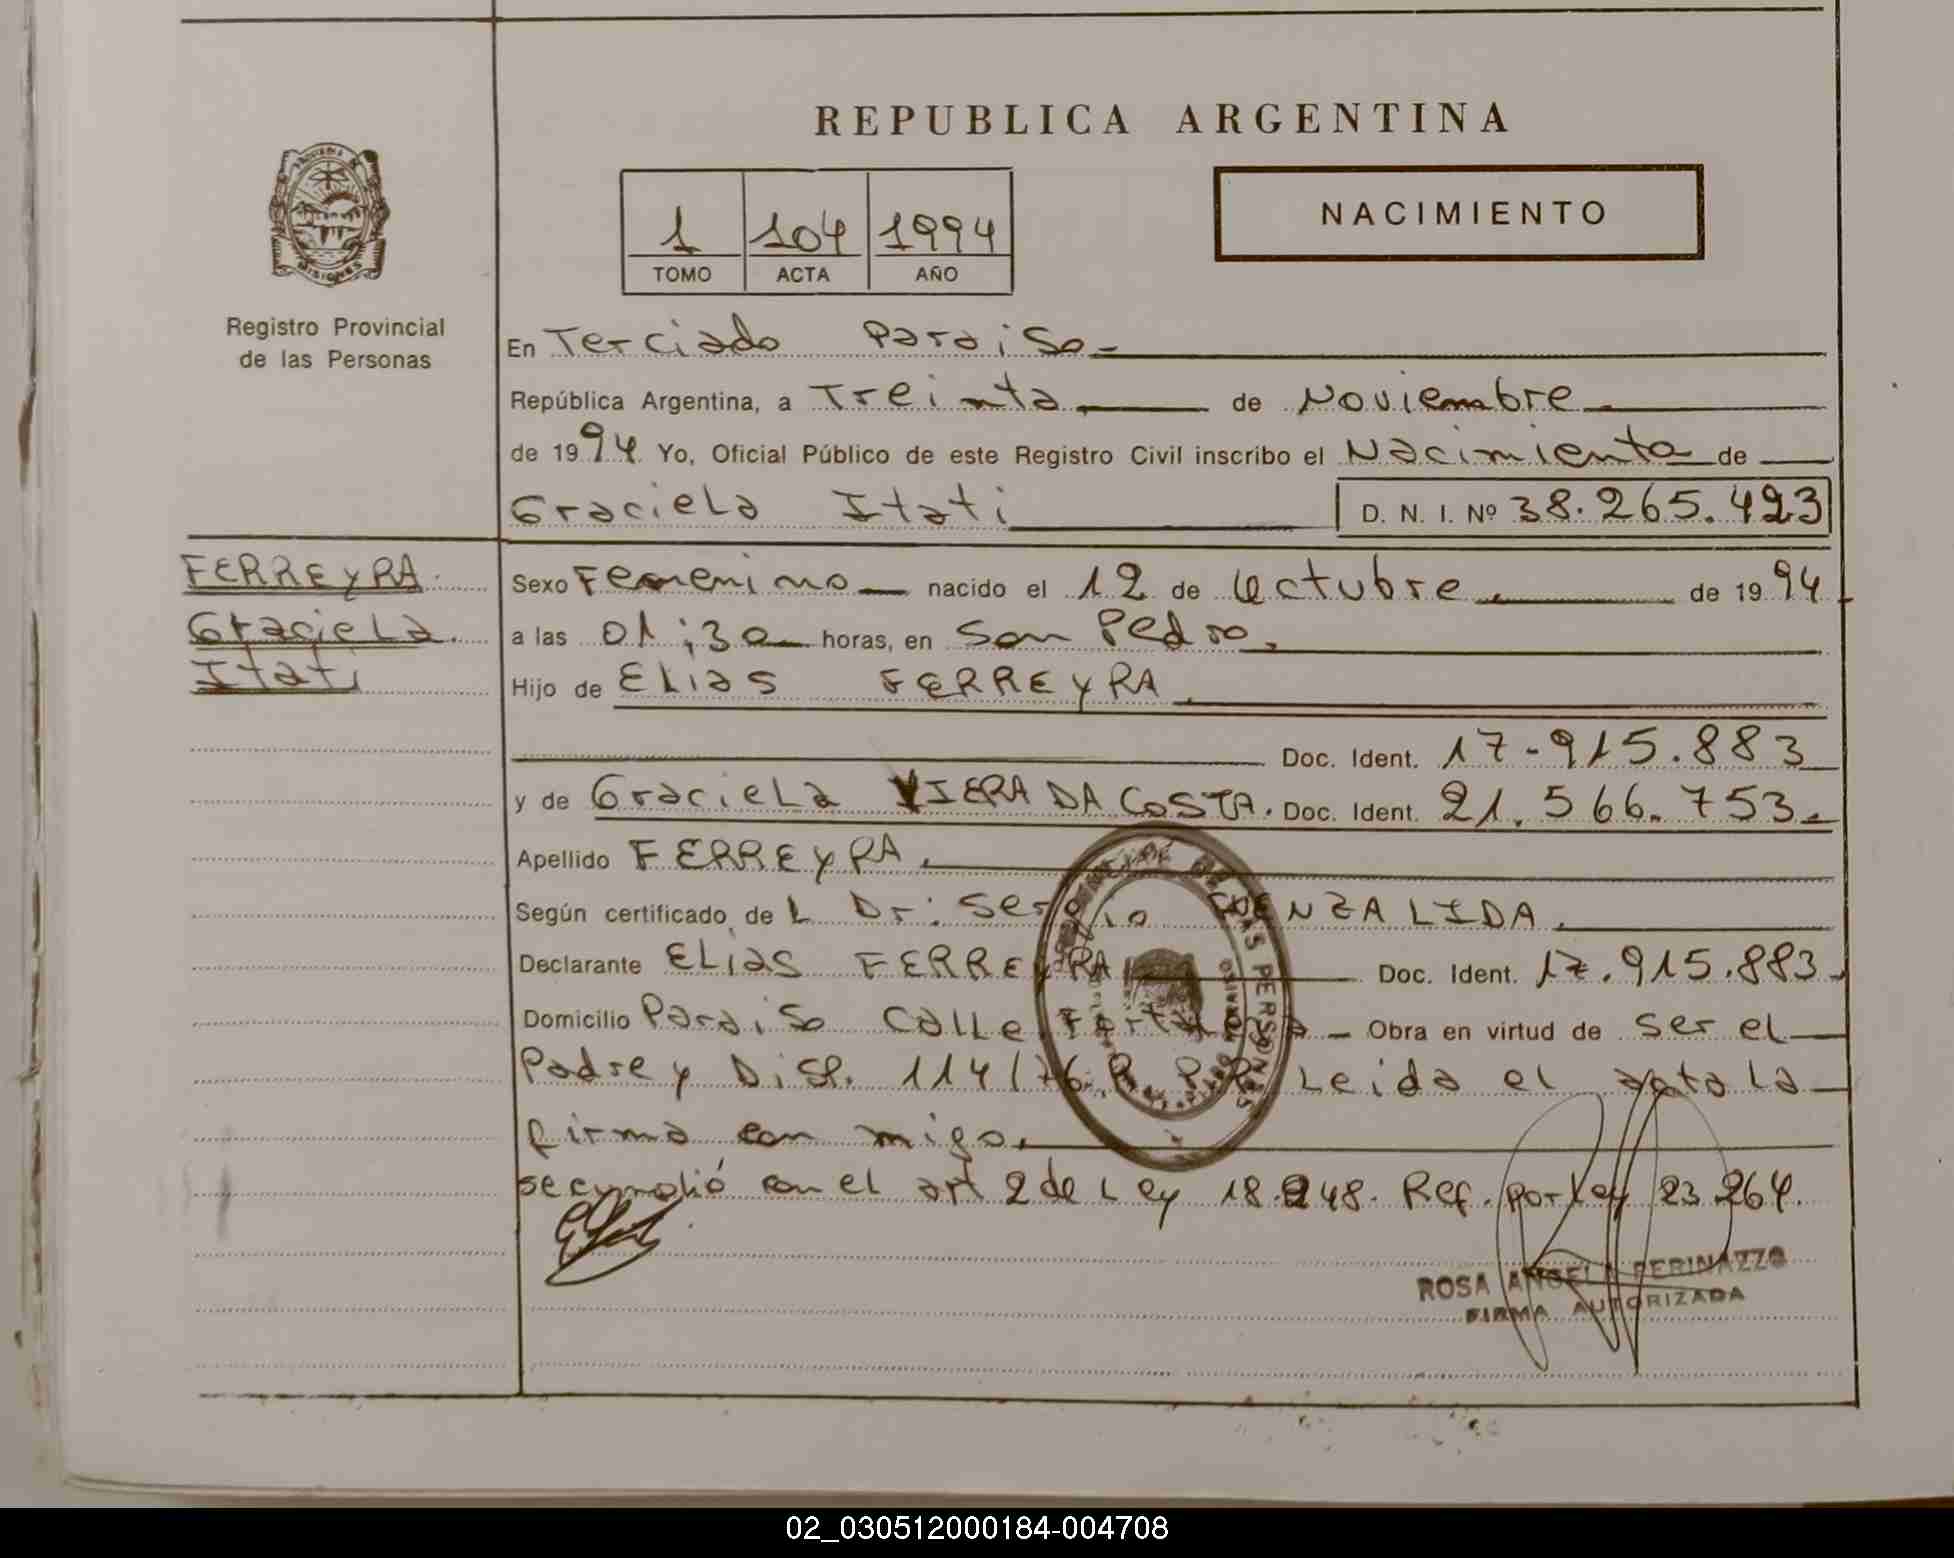 REPUBLICA ARGENTINA
NACIMIENTO
1 104 1994
TOMO ACTA AÑO
MISIONES
Registro Provincial
de las Personas
En Terciado Paraiso.-
República Argentina, a Treinta de Noviembre.
de 1994. Yo, Oficial Público de este Registro Civil inscribo el Nacimiento de
Graciela Itati D. N. I. Nº 38.265.423
FERREYRA
Graciela
Itati
Sexo Femenino nacido el 12 de Octubre de 1994
a las 01:30 horas, en San Pedro.
Hijo de Elias FERREYRA.
Doc. Ident. 17.915.883
y de Graciela VIERA DA COSTA. Doc. Ident. 21.566.753.
Apellido FERREYRA.
Según certificado de L Dr: Sergio ENZALIDA.
Declarante Elias FERREYRA Doc. Ident. 17.915.883
Domicilio Paraiso Calle - Obra en virtud de ser el
Padre y Disp. 1141/76. Leida el acta la
firma con migo.
se cumplió con el art 2 de Ley 18.248. Ref. por Ley 23.264.
ROSA ANGELA PERINAZZO
FIRMA AUTORIZADA
02_030512000184-004708